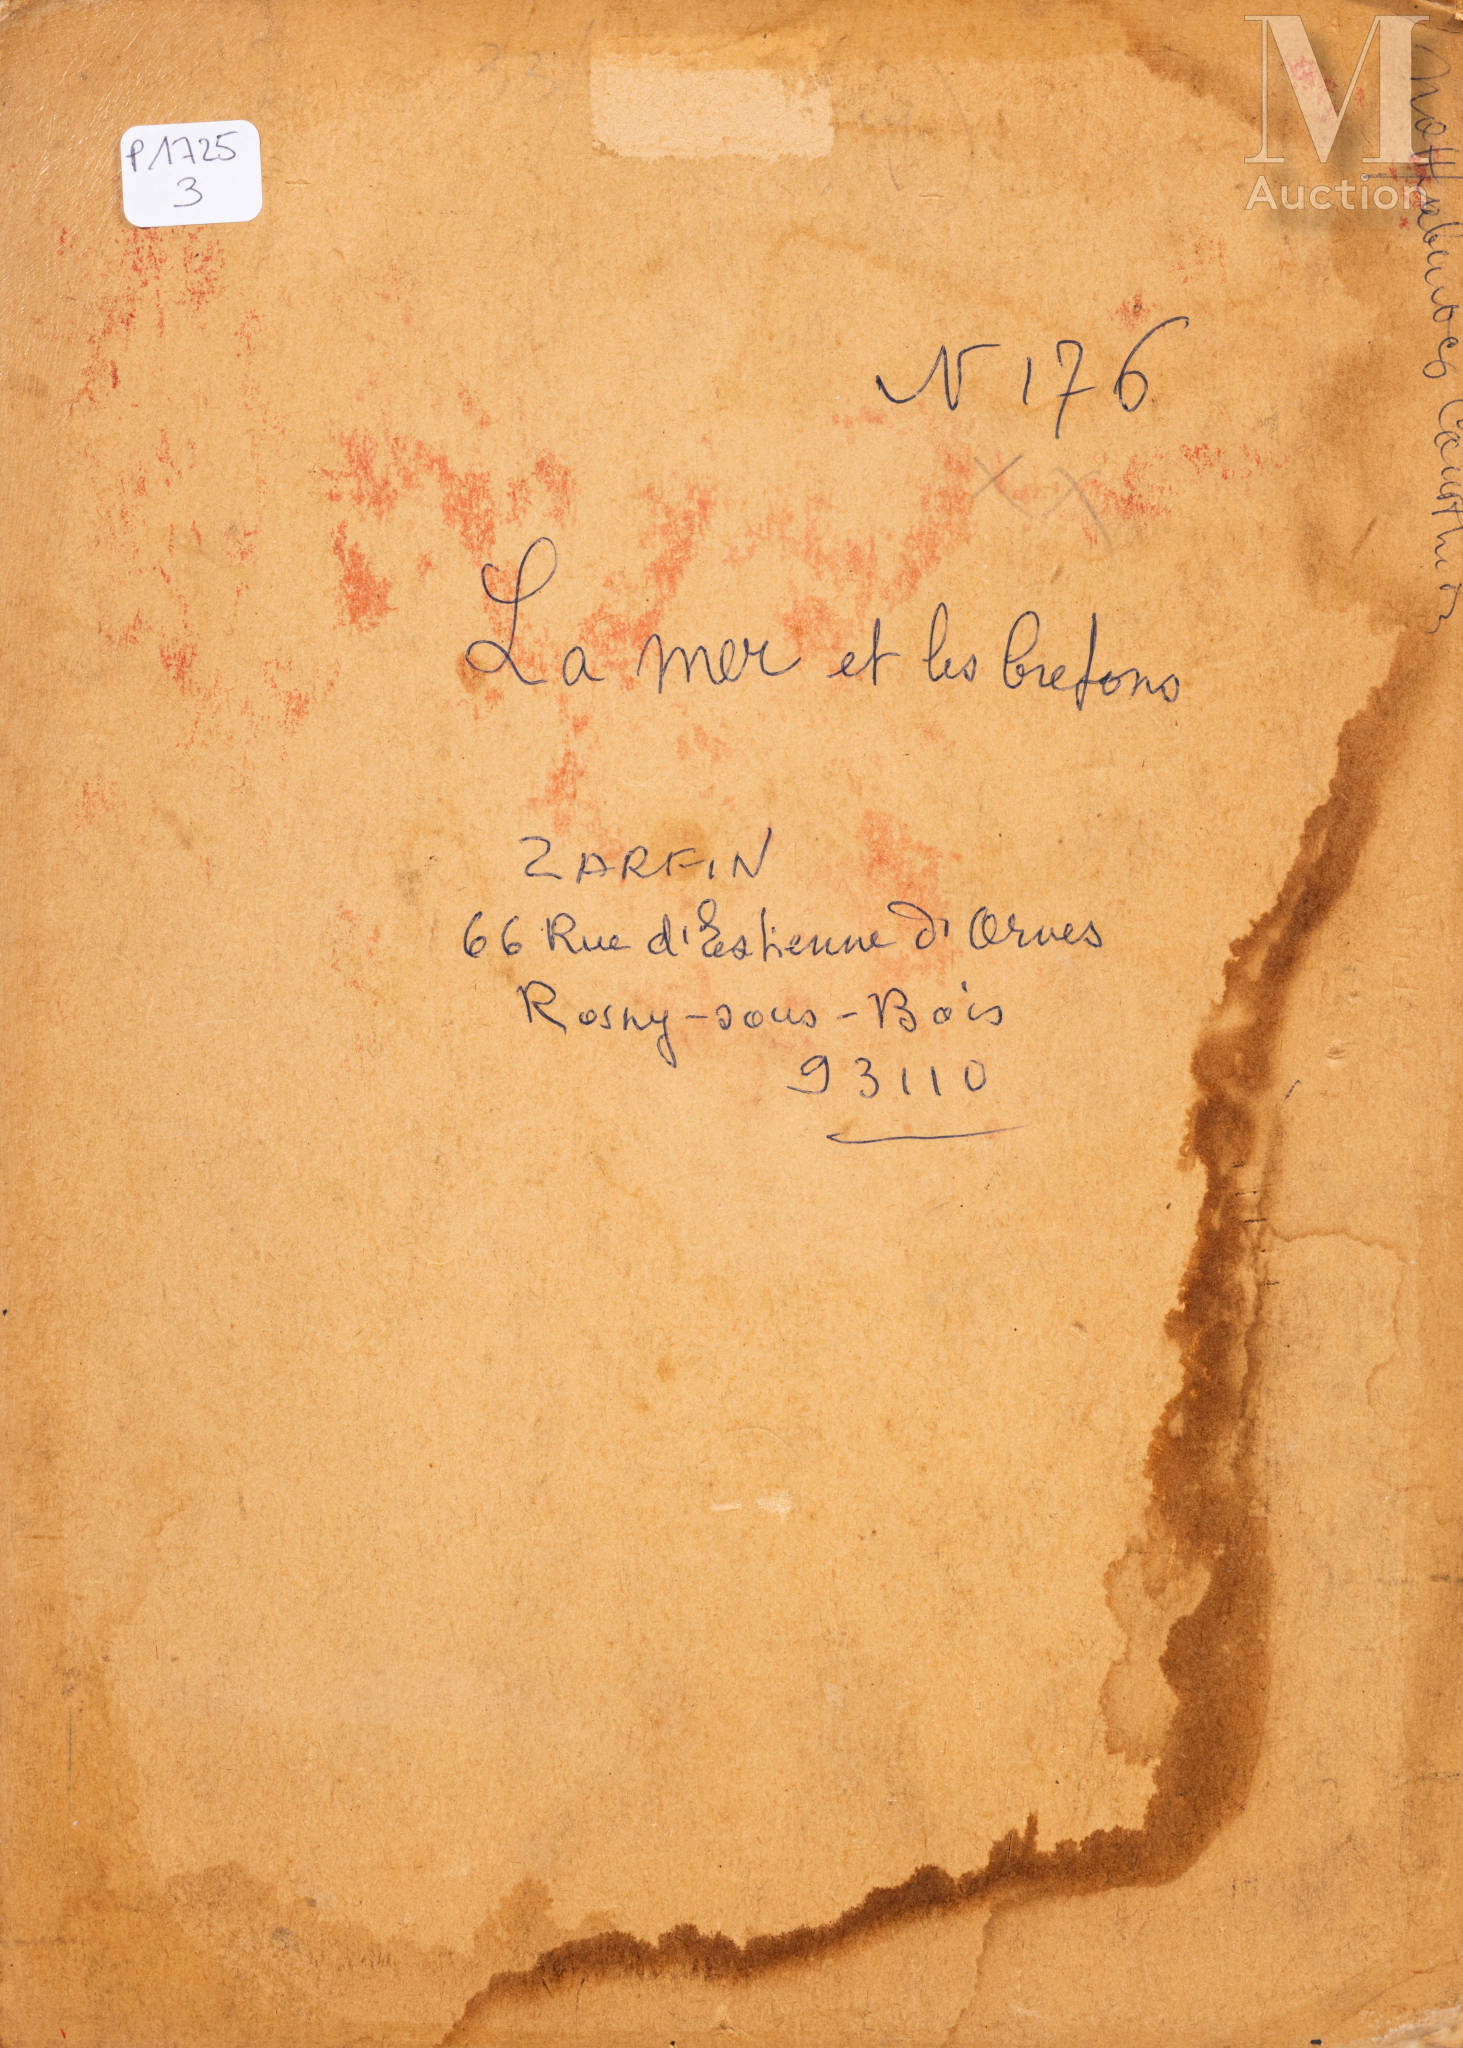 M
Auction
P1725
3
N 176
XX
La mer et les bretons
ZARFIN
66 Rue d'Estienne d'Orves
Rosny-sous-Bois
93110